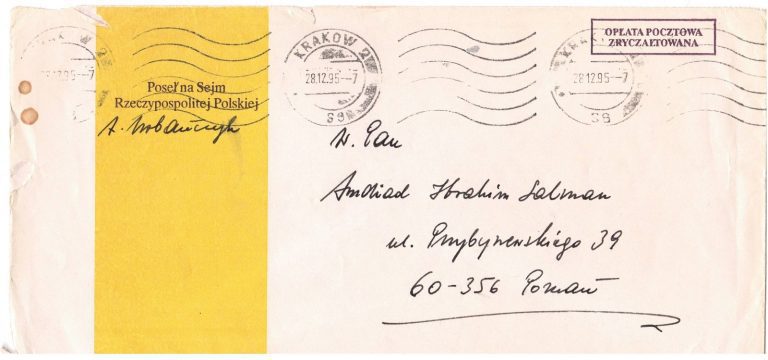 OPŁATA POCZTOWA
ZRYCZAŁTOWANA
KRAKÓW 2
28.12.95--7
KRAKÓW
28.12.95--7
28.12.95--7
Poseł na Sejm
Rzeczypospolitej Polskiej
A. Urbańczyk
W. Pan
Ibrahim Salman
ul. Przybyszewskiego 39
60-356 Poznań